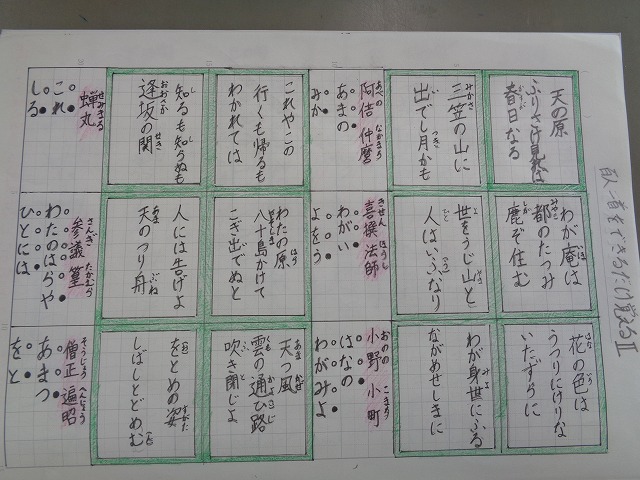 百人一首をできるだけ覚えるII
天の原
ふりさけ見れば
春日なる
三笠の山に
出でし月かも
仲麿
あまの
みか
これやこの
行くも帰るも
わかれては
知るも知らぬも
逢坂の関
蝉丸
これ
しる
わが庵は
都のたつみ
鹿ぞ住む
世をうじ山と
人はいふなり
喜撰法師
わがい
よをう
わたの原
八十島かけて
こぎ出でぬと
人には告げよ
天のつり舟
参議篁
わたのはらや
ひとには
花の色は
うつりにけりな
いたずらに
わが身世にふる
ながめせしまに
小野 小町
はなの
わがみよ
天つ風
雲の通ひ路
吹き閉じよ
をとめの姿
しばしとどめむ
僧正 遍昭
あまつ
をと